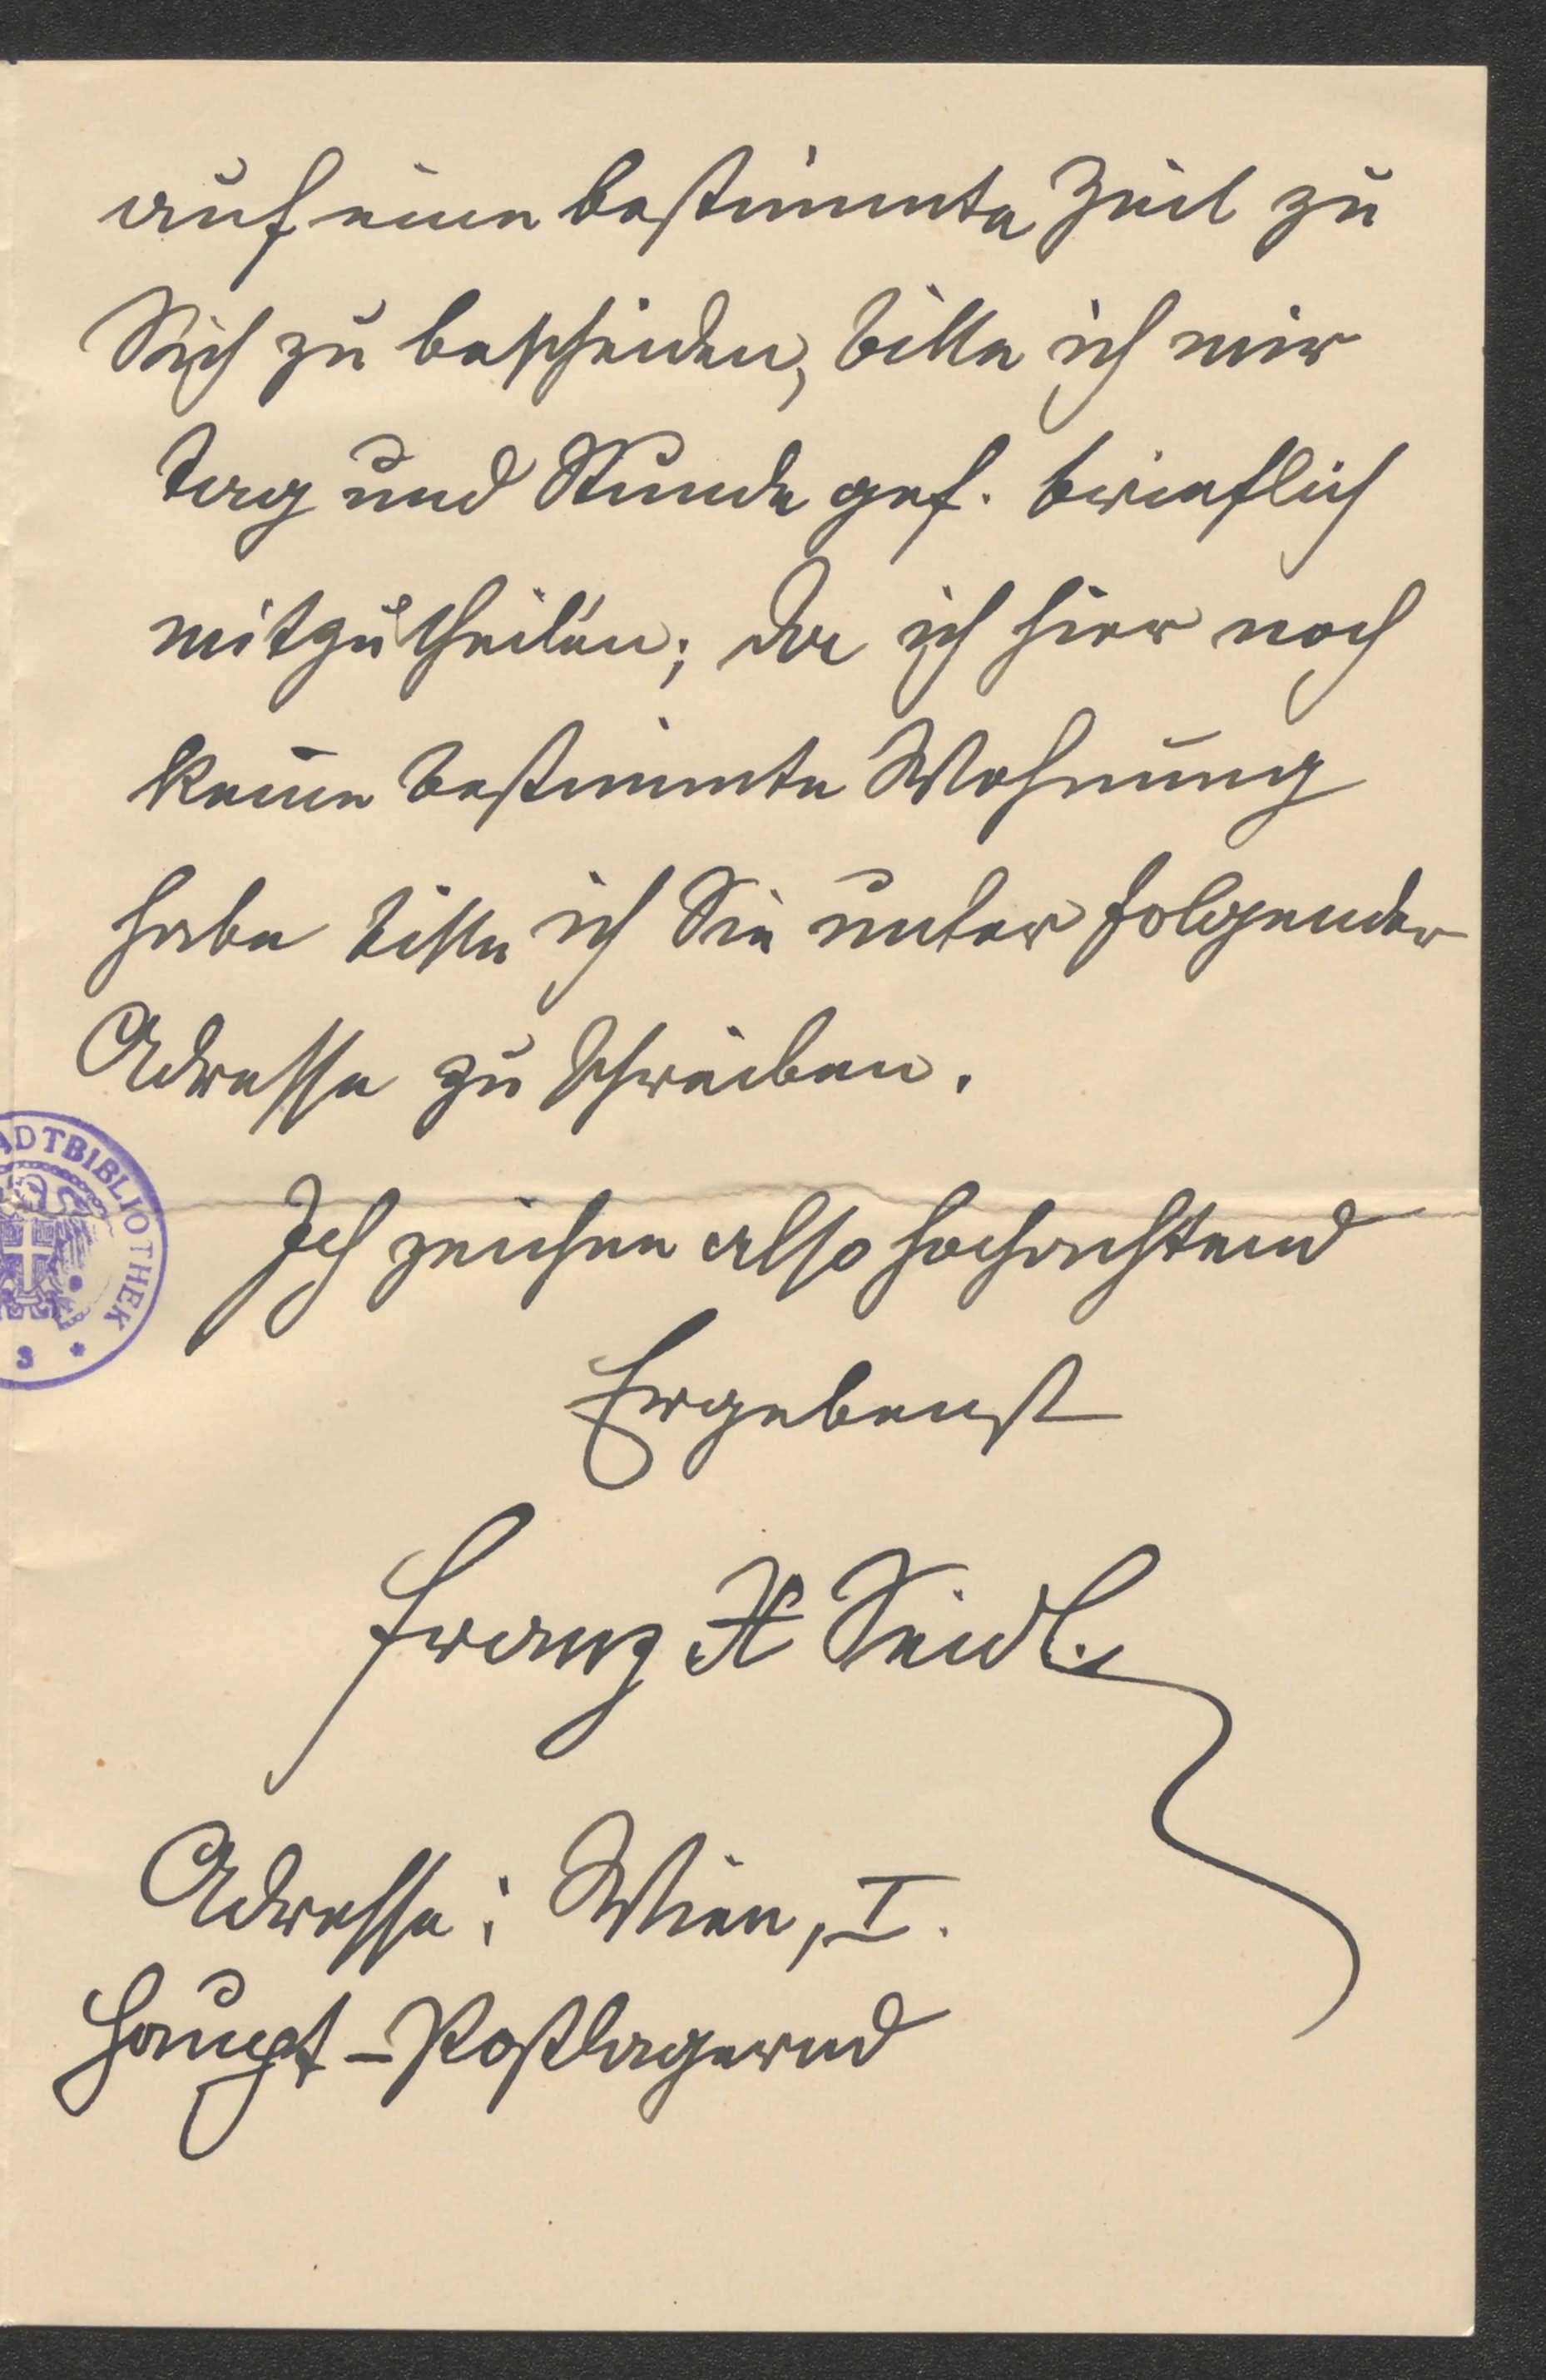 auf eine bestimmte Zeit zu
Sich zu bescheiden, bitte ich mir
Tag und Stunde gef. brieflich
mitzutheilen; da ich hier noch
keine bestimmte Wohnung
habe bitte ich Sie unter folgender
Adresse zu schreiben.
ADTBIBLIOTHEK
Ich zeichne also hochachtend
S *
Ergebenst
Franz X Seidl.
Adresse: Wien, I.
Haupt-Postlagernd